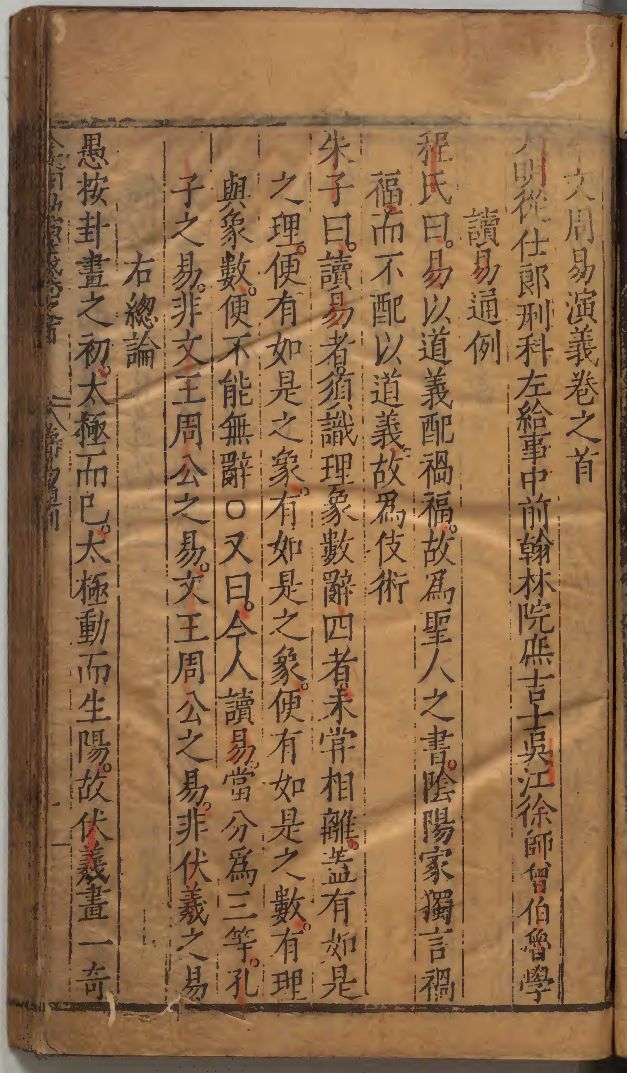 今文周易演義卷之首
大明從仕郎刑科左給事中前翰林院庶吉士吳江徐師曾伯魯學
讀易通例
程氏曰易以道義配禍福故爲聖人之書陰陽家獨言禍
福而不配以道義故爲伎術
朱子曰讀易者須識理象數辭四者未甞相離蓋有如是
之理便有如是之象有如是之象便有如是之數有理
與象數便不能無辭○又曰今人讀易當分爲三等孔
子之易非文王周公之易文王周公之易非伏羲之易
右總論
愚按卦畫之初太極而已太極動而生陽故伏羲畫一奇